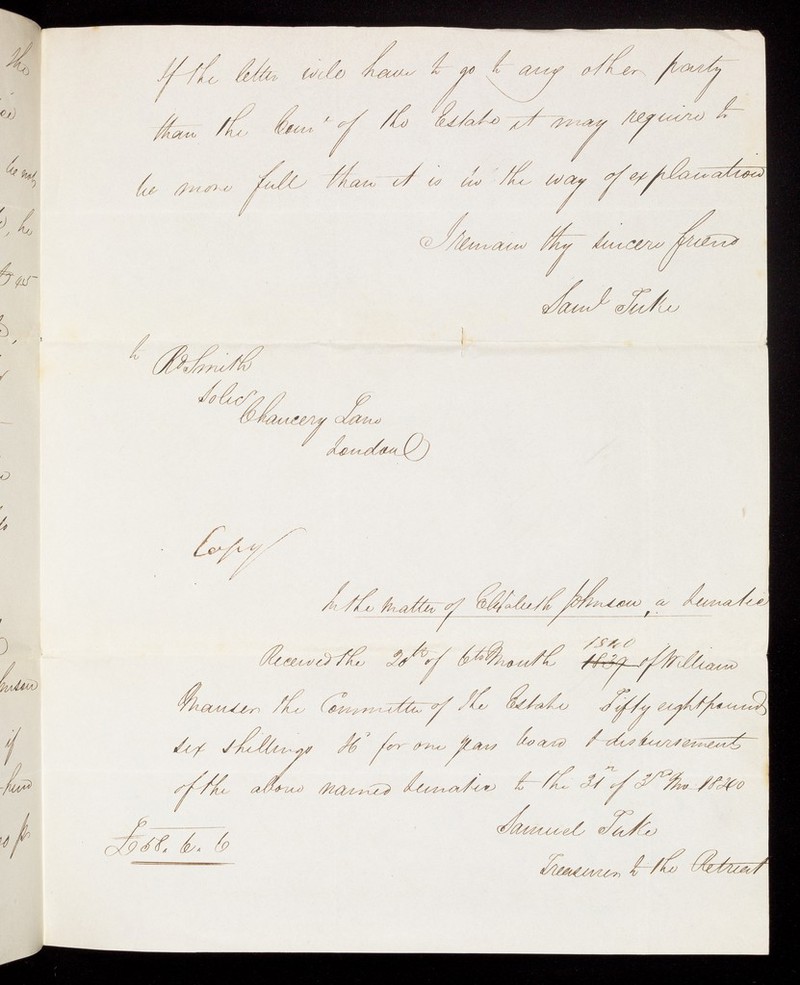 If the letter will have to go to any other party
than the Comee of the Estate it may require to
be more full than it is in the way of explanation
I remain thy sincere friend
Saml Tuke
to Rd Smith
Solicr
Chancery Lane
London
Copy
In the matter of Elizabeth Johnson, a lunatic
1840
Received the 20th of 6th Month 1839 of William
Manser the Committee of the Estate Fifty eight pounds
six shillings & 6d for one years board & disbursements
of the above named lunatic to the 31st of 3rd Mo 1840
Samuel Tuke
£58. 6. 6
Treasurer to the Retreat